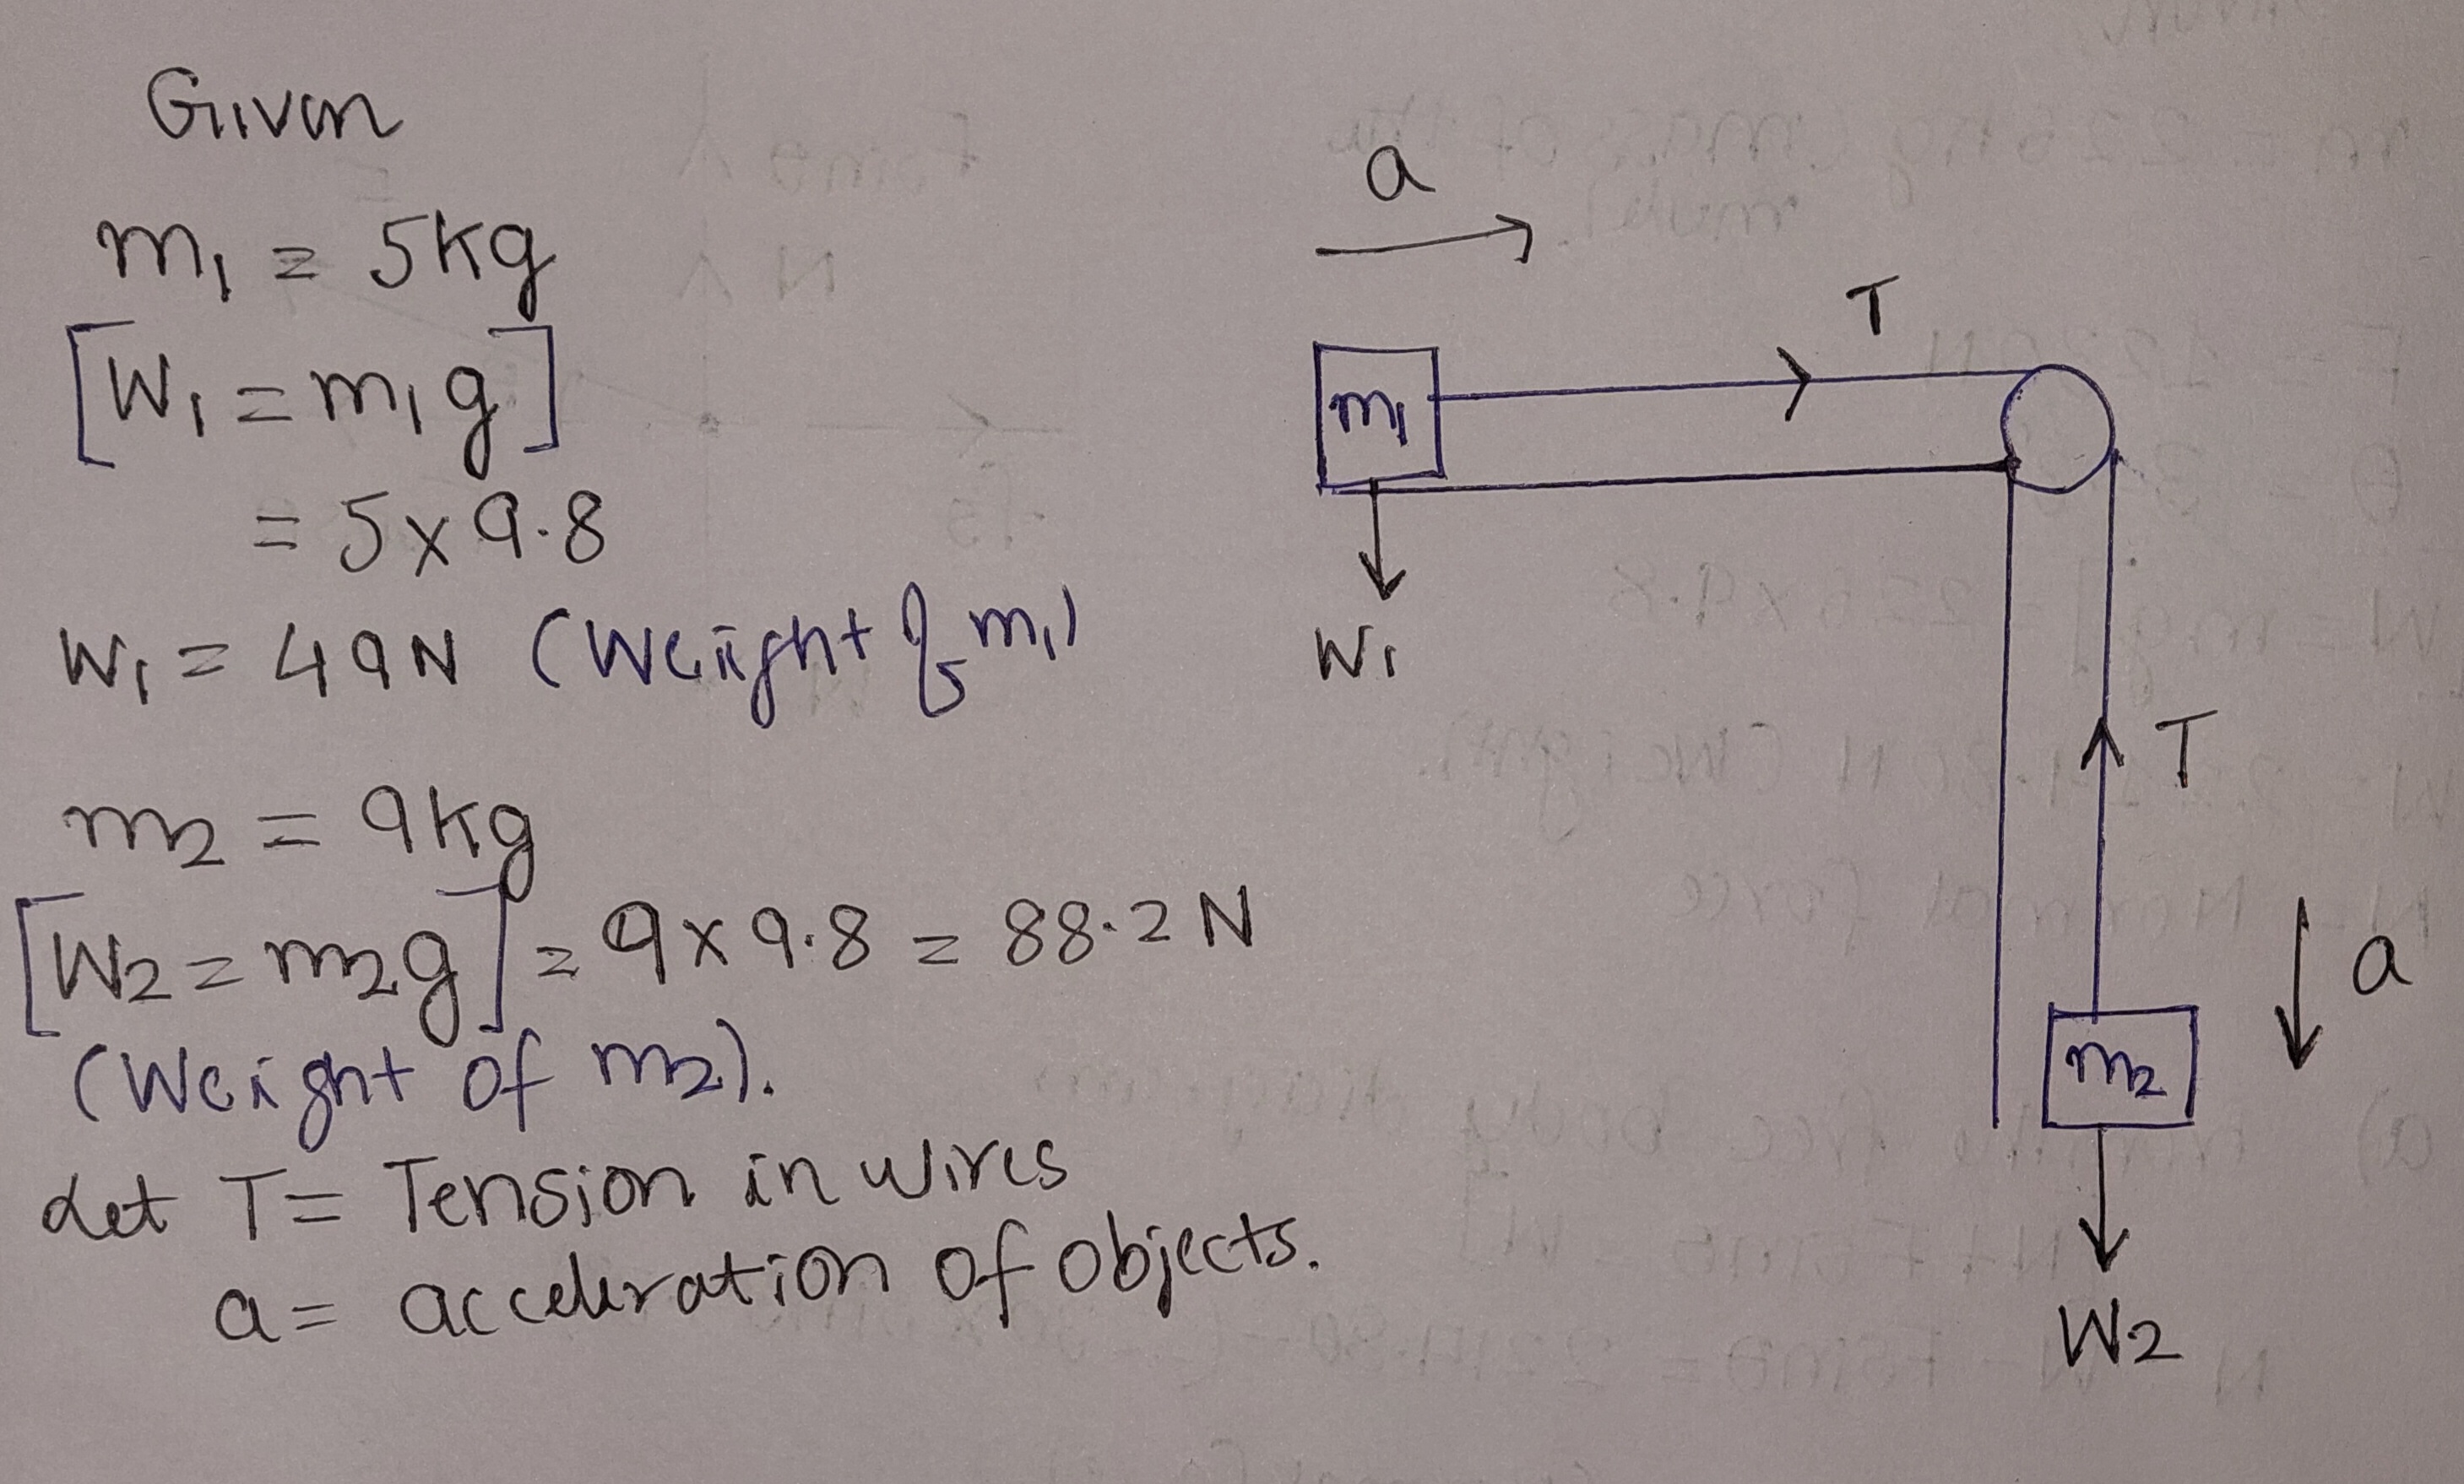 Given
m1 = 5kg
[W1 = m1g]
= 5x9.8
W1 = 49N (Weight of m1)
m2 = 9kg
[W2 = m2g] = 9x9.8 = 88.2N
(Weight of m2).
Let T = Tension in wires
a = acceleration of objects.
a
T
m1
W1
T
a
m2
W2